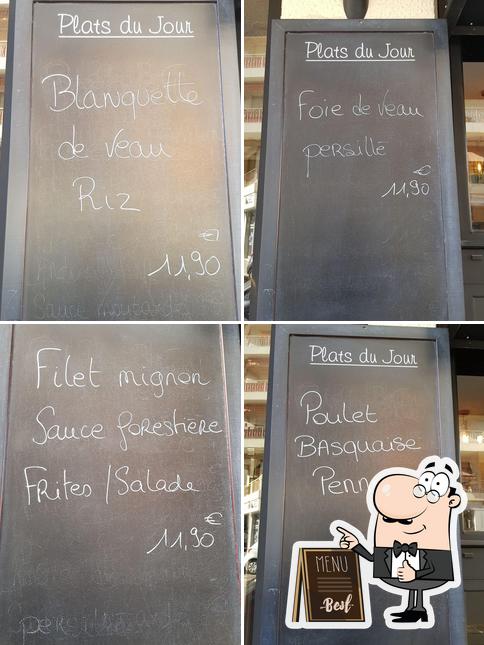 Plats du Jour
Blanquette
de veau
Riz
€
11,90
Sauce moutarde
Plats du Jour
Foie de veau
persillé
€
11,90
Filet mignon
Sauce forestière
Frites / Salade
€
11,90
Plats du Jour
Poulet
BASQUAISE
Penn
MENU
Best